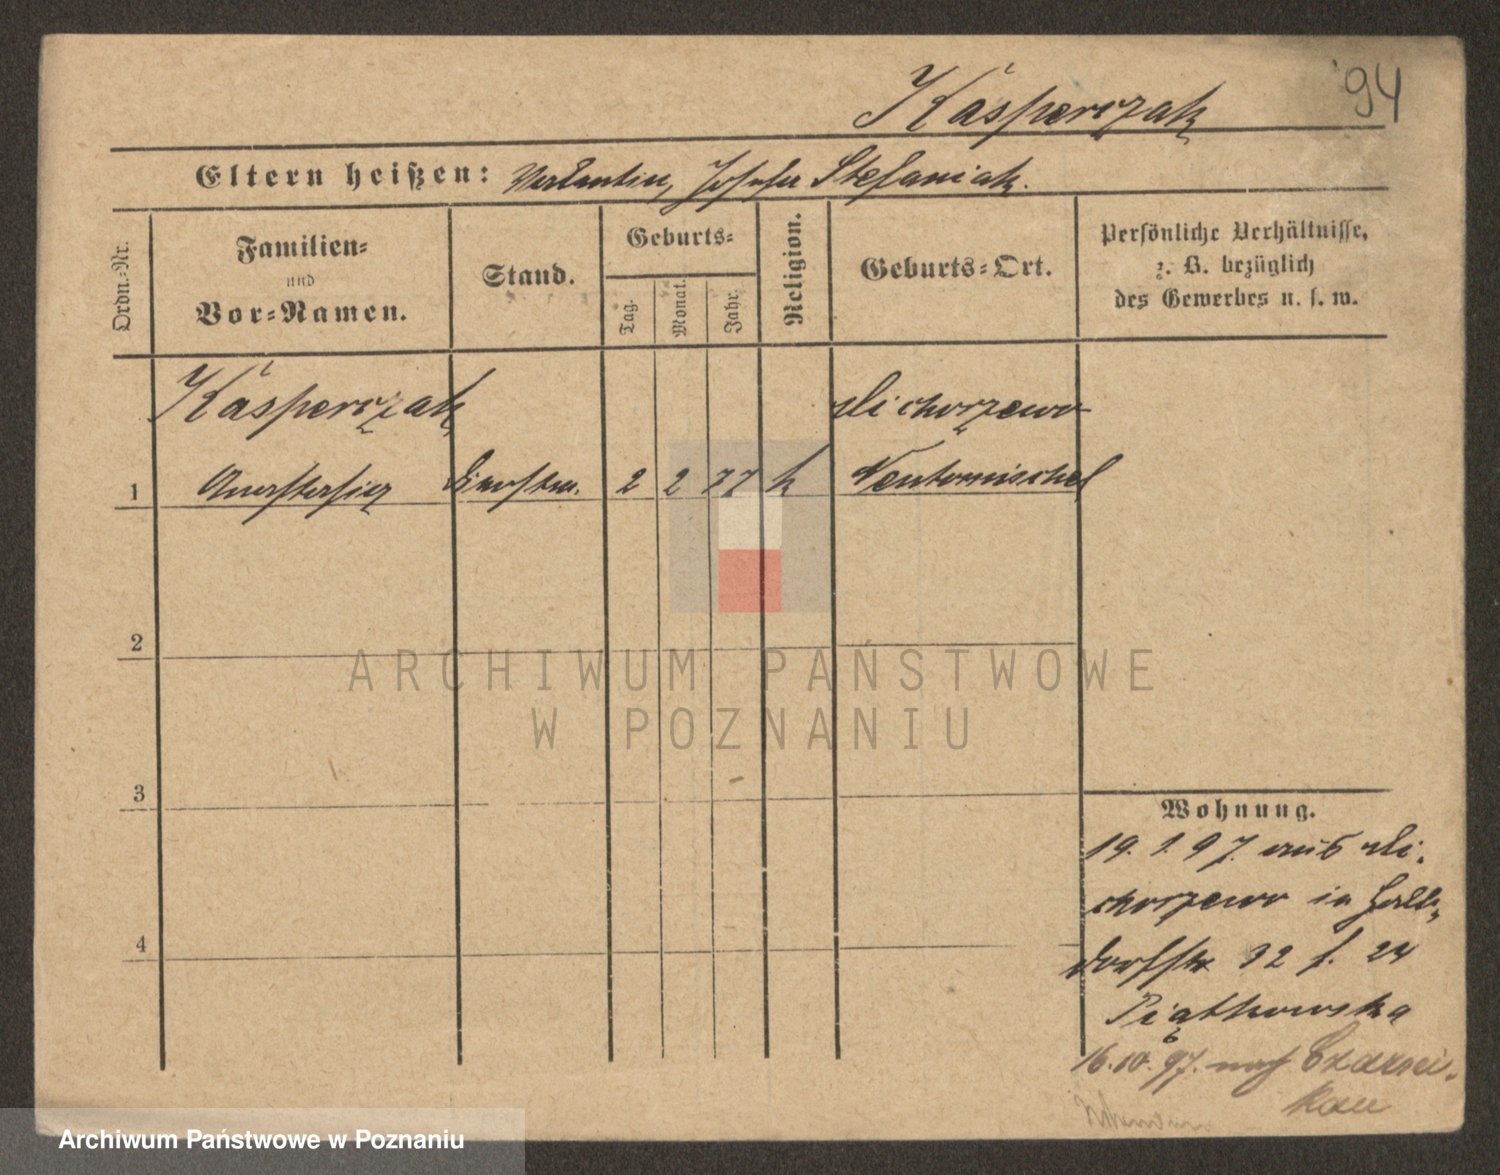 '94
Kasperczak
Eltern heißen: Valentin, Josefa Stefaniak.
Ordn.-Nr.
Familien-
und
Vor-Namen.
Stand.
Geburts-
Tag.
Monat.
Jahr.
Religion.
Geburts-Ort.
Persönliche Verhältnisse,
z. B. bezüglich
des Gewerbes u. s. w.
Kasperczak
1 2 2 77 k Neutomischel
2
3
4
Wohnung.
19. 1. 97. aus
in
dorfstr 32 f. 24
Piątkowska
16.10.97. nach Czarni-
kau
ARCHIWUM PAŃSTWOWE
W POZNANIU
Archiwum Państwowe w Poznaniu